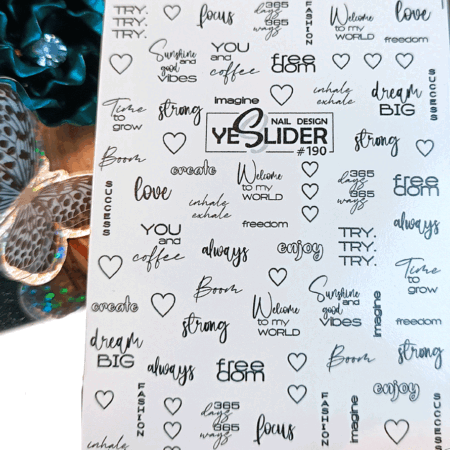 TRY.
TRY.
TRY.
focus
365
days
365
ways
FASHION
Welcome
to my
WORLD
love
freedom
Sunshine
and
good
vibes
YOU
and
coffee
free
dom
SUCCESS
Time
to grow
strong
imagine
inhale
exhale
dream
BIG
NAIL DESIGN
YESLIDER
#190
strong
Boom
create
Welcome
to my
WORLD
365
days
365
ways
free
dom
SUCCESS
love
inhale
exhale
freedom
always
YOU
and
coffee
always
enjoy
TRY.
TRY.
TRY.
Time
to
grow
create
Boom
strong
Welcome
to my
WORLD
Sunshine
and
good
vibes
imagine
freedom
dream
BIG
always
free
dom
Boom
strong
enjoy
FASHION
365
days
365
ways
focus
FASHION
imagine
SUCCESS
inhale